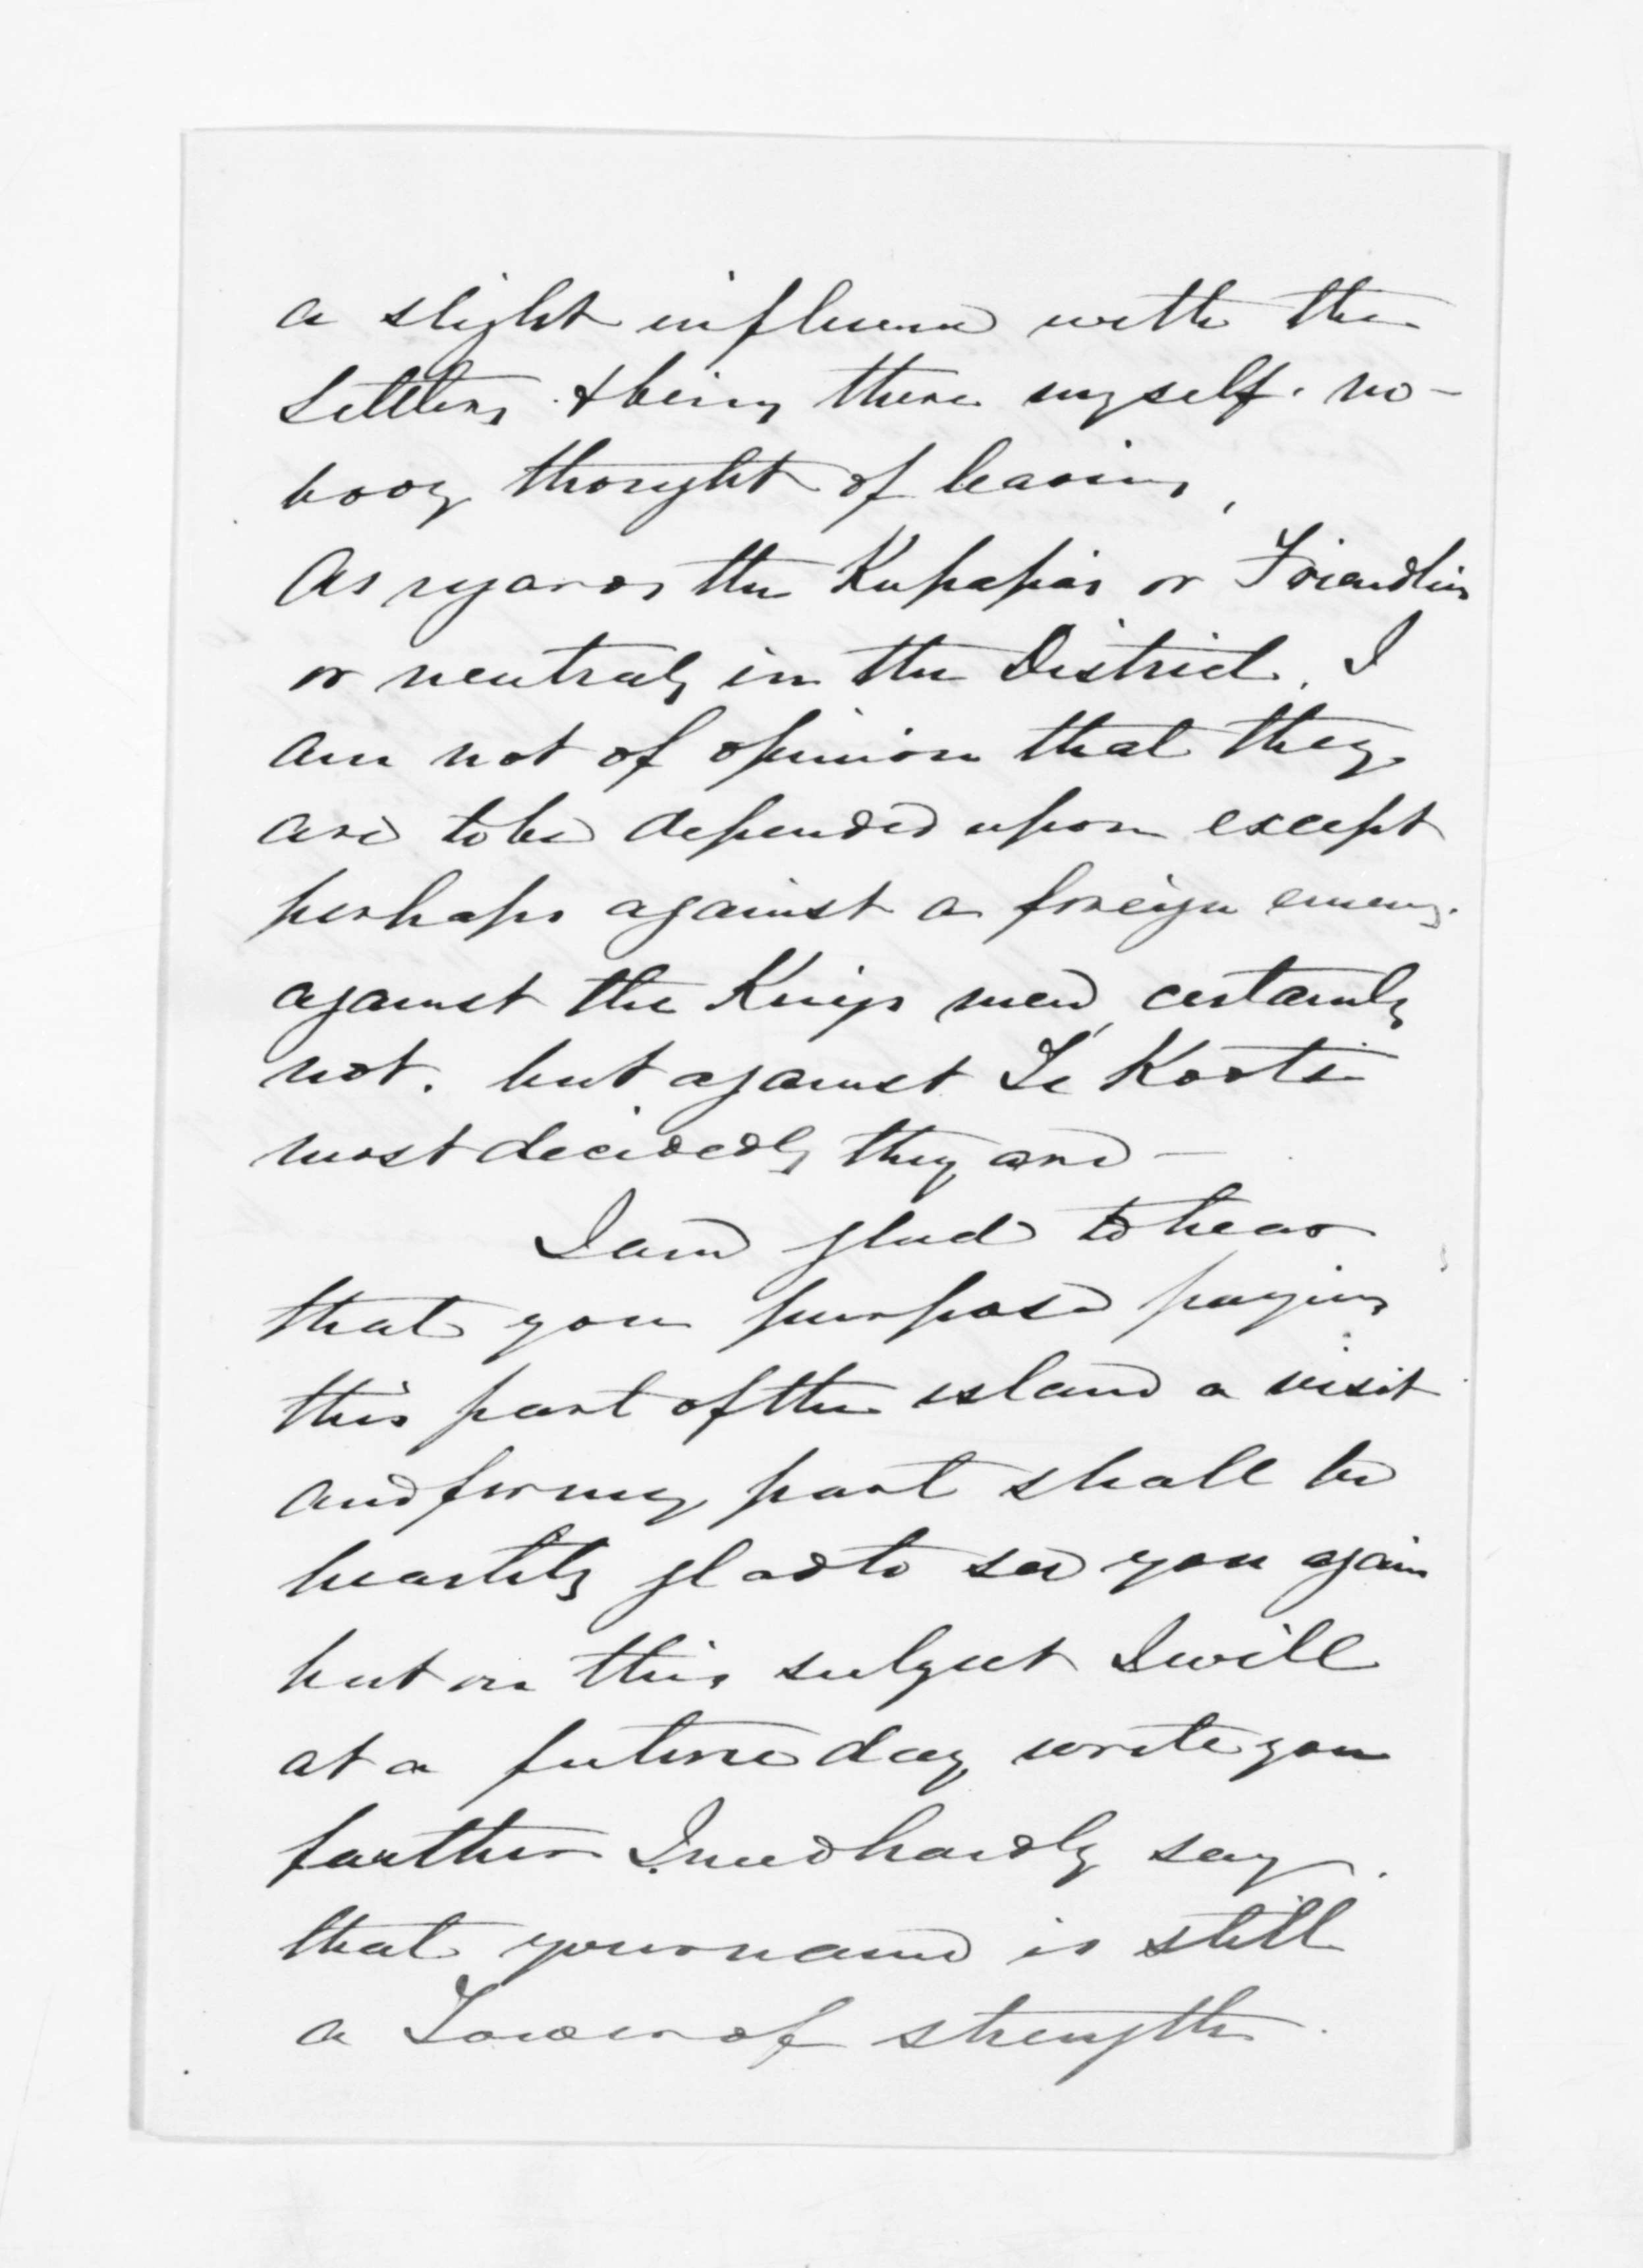 a slight influence with the
Settlers & being there myself. no-
body thought of leaving,
As regards the Kupapas or Friendlies
or neutrals in the District. I
am not of opinion that they
are to be depended upon except
perhaps against a foreign enemy.
against the Kings men, certainly
not. but against Te Kooti
most decidedly they are —
I am glad to hear
that you purpose paying
this part of the island a visit
and for my part shall be
heartily glad to see you again
but on this subject I will
at a future day write you
further I need hardly say
that your name is still
a Tower of strength.